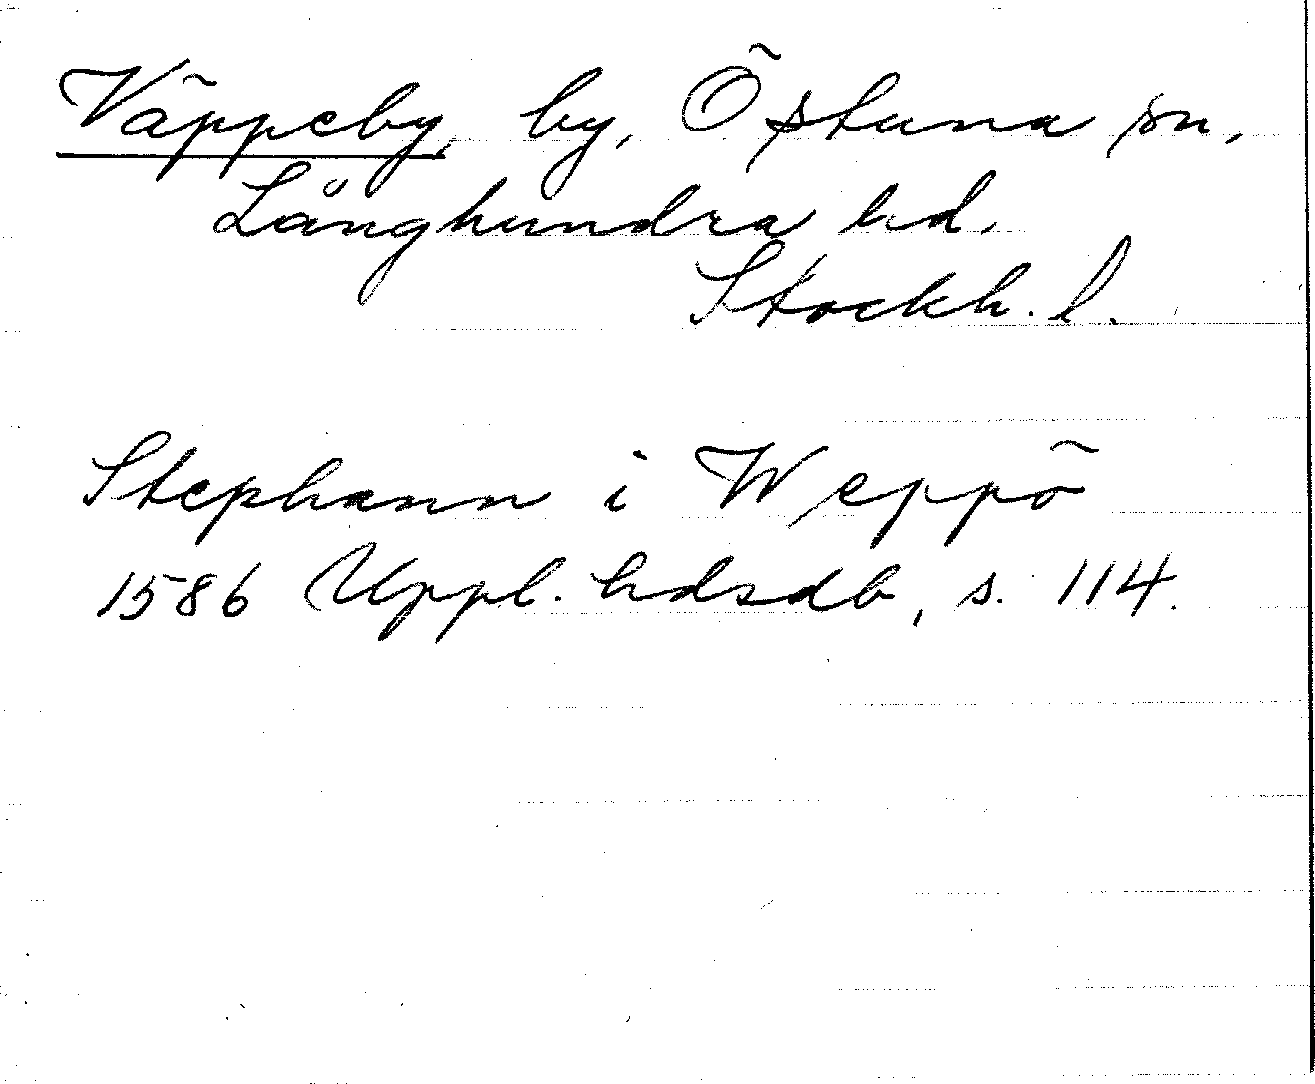 Väppeby, by, Östuna sn,
Långhundra hd,
Stockh. l.
Stephann i Weppö
1586 Uppl. hdsdb, s. 114.